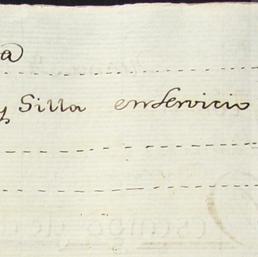 a
y Silla enServicio